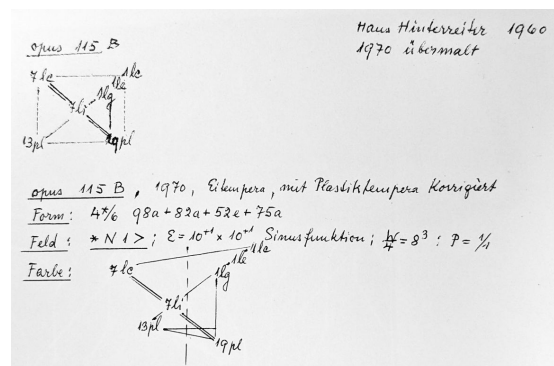 Hans Hinterreiter 1960
1970 übermalt
opus 115 B
7lc
1lc
1le
1lg
7li
13pl
19pl
opus 115 B, 1970, Eitempera, mit Plastiktempera Korrigiert
Form: 4*/6 98a+82a+52e+75a
Feld: *N1>; E=10⁺¹ x 10⁺¹ Sinusfunktion; =8³: P=1/1
Farbe:
1lc
1le
7lc
1lg
7li
13pl
19pl